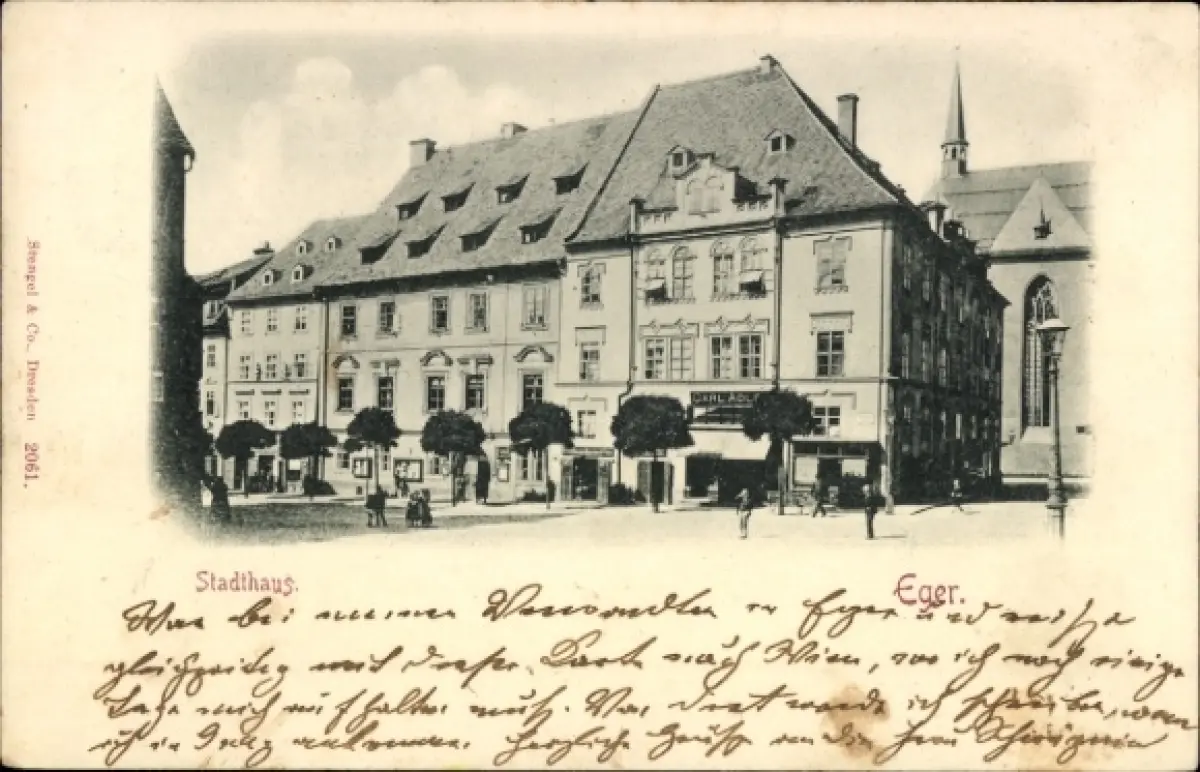 CARL ADL
Stengel & Co., Dresden 2061.
Stadthaus.
Eger.
War bei meinen Verwandten in Eger und reise
gleichzeitig mit dieser Karte nach Wien, wo ich noch einige
Tage mich aufhalten muß. Von dort werde ich schreiben, wann
ich in ankomme. Herzliche Grüße an die Frau